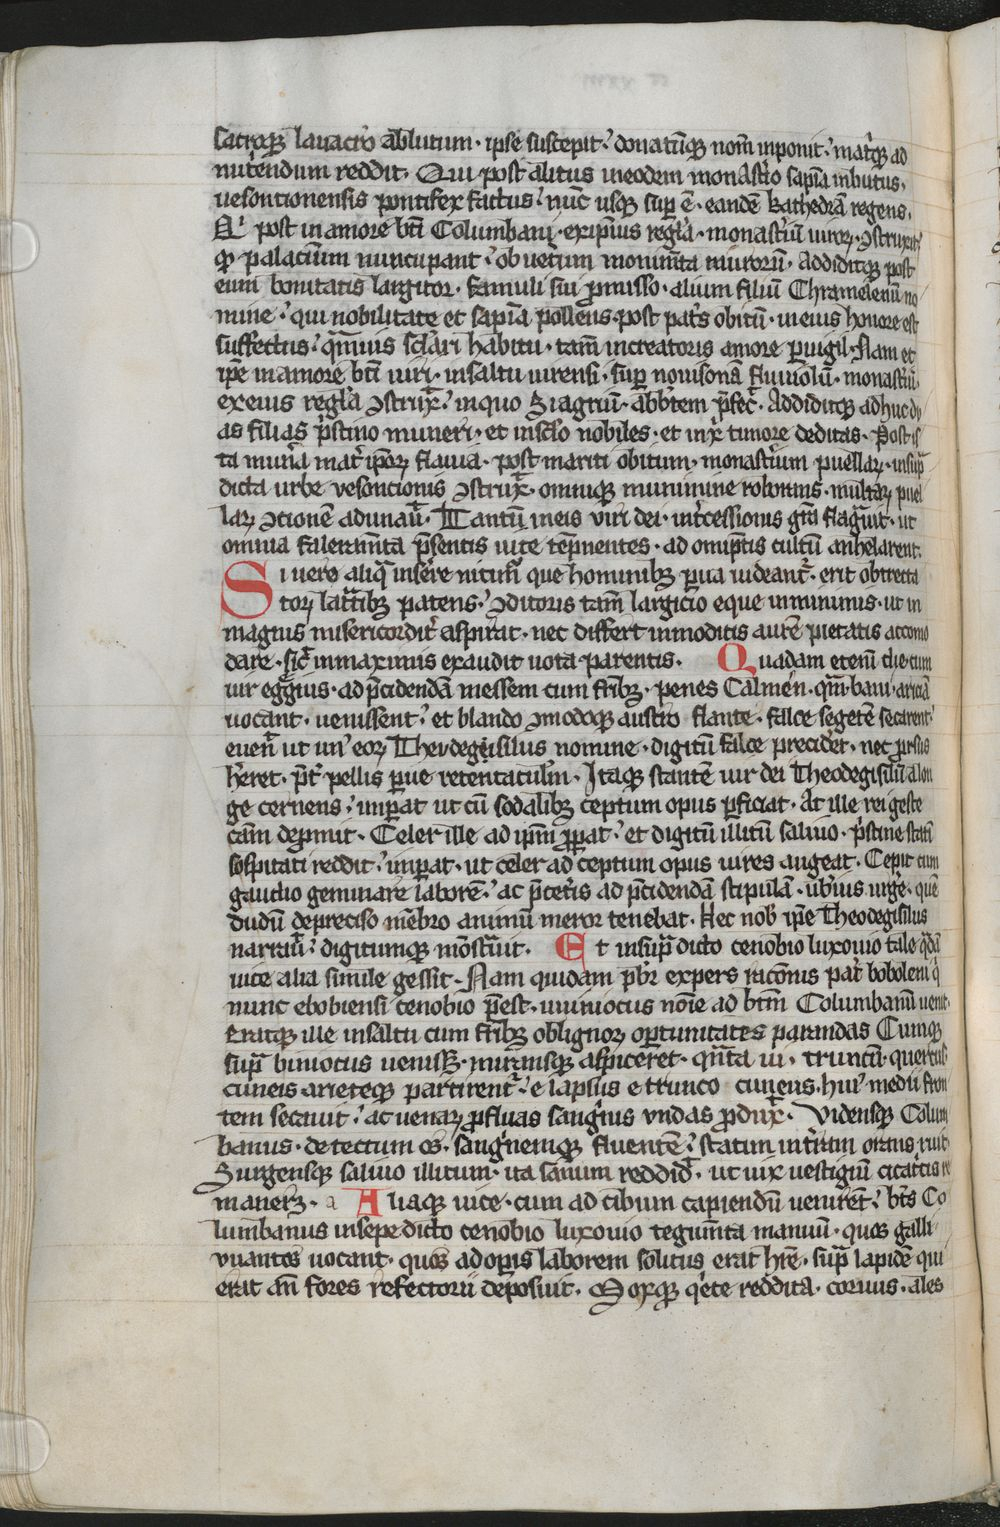 sacroqꝫ lauacro ablutum · ipse suscepit · donatūqꝫ nom̄ inponit · mat̄qꝫ ad
nut̄endum reddit · Qui post alitus ineodem monast̄io sapīa inbutus ·
uesontionensis pontifex factus · nūc usqꝫ sup ē · eandē kathedrā regens ·
post inamore btī Columbani · exip̄ius regl̄a · monast̄iū uiroꝝ · ꝯstruxit
qd̄ palacium nuncupant · ob uetum monim̄ta muroꝝ · Addiditqꝫ post
eum bonitatis largitor · famuli sui ꝓmisso · alium filiū Chramelenū no
mine · qui nobilitate et sapīa pollens · post pat̄s obitū · ineius honore est
suffectus · qͣmuis sclāri habitu · tam̄ increatoris amore ꝑuigil · Nam et
ip̄e inamore btī uiri · insaltu iurensi · sup nouisonā fluuiolū · monast̄iū
exeius regl̄a ꝯstrux̄ · inquo Siagriū · abb̄tem p̄fec̄ · Addiditqꝫ adhuc du
as filias p̄stino muneri · et inscl̄o nobiles · et inxp̄i timore deditas · Post is
ta mun̄a mat̄ ip̄oꝝ flauia · post mariti obitum · monast̄ium puellaꝝ · insup̄
dicta urbe vesoncionis ꝯstrux̄ · omniqꝫ munimine roborans · multaꝝ puel
laꝝ ꝯcionē adunau̅ · Tantū ineis viri dei · int̄cessionis gr̄a flagͣuit · ut
omnia faleram̄ta p̄sentis uite tēpnentes · ad omīptis cultū anhelarent ·
Si uero aliqͣ insere nitim̄ que hominibꝫ ꝑua uideantᷣ · erit obtrecta
toꝝ latͣtibꝫ patens · ꝯditoris tam̄ largicio eque inminimis · ut in
magnis misericordit̄ aspirat · nec differt inmodicis aurē pietatis accomo
dare · sic̄ inmaximis exaudit uota parentis · Quadam etenī die · cum
uir egͣgius · ad p̄cidendā messem cum frībꝫ · penes Calmen · qͣm baui · ariciā
uocant · venissent · et blando ꝯmodoqꝫ aust̄o flante · falce segetē secarent ·
euen̄ ut un᾽ eoꝝ Theudegeisilus nomine · digitū falce precidet · nec ꝓrsus
h̄eret · p̄t̄ pellis ꝑue retentaculūm · Itaqꝫ stantē uir dei Theodegisilū alon
ge cernens · imꝑat ut cū sodalibꝫ ceptum opus ꝑficiat · At ille rei geste
cām deꝓmit · Celer ille ad ip̄m ꝓꝑat · et digitū illitū saliuo · p̄stine stati
sospitati reddit · imꝑat · ut celer ad ceptum opus uires augeat · Cepit cum
gaudio geminare laborē · ac p̄cet̄is ad p̄cidendā stipulā · ub̄ius urge · quē
dudū depreciso mēbro animū meror tenebat · Hec nob̄ ip̄e Theodegisilus
narrau̅ · digitumqꝫ mōstͣuit · Et insupͣdicto cenobio luxouio tale qͣdā
uice alia simile gessit · Nam quidam p̄br expers inicōnis pat̄ boboleni qͥ
nunc ebobiensi cenobio p̄est · uuiniocus noīe ad btm̄ Columbanū uenit ·
Eratqꝫ ille insaltu cum frībꝫ oblignoꝝ oꝑtunitates parandas Cumqꝫ
supͣ biniocus uenissꝫ · miransqꝫ aspiceret · qn̄ta ui · truncū · quercus
cuneis arieteqꝫ partirentᷣ · elapsus etrunco cuneus · hui᾽ medii fron
tem secauit · ac uenaꝝ ꝓfluas sangͥnis vndas ꝓdux̄ · Vidensqꝫ Colum
banus · detectum os · sangͥnemqꝫ fluentē · statim int̄ram orans ruit ·
Surgensqꝫ saliuo illitum · ita sanum reddid̄ · ut uix uestigiū cicatͥcis re
manerꝫ · a Aliaqꝫ uice · cum ad cibum capiendū ueniret · bt̄s Co
lumbanus insepedicto cenobio luxouio tegiūmta manuū · quos galli
vuantos uocant · quos adopis laborem solitus erat hr̄e · supͣ lapidē qui
erat an̄ fores refectorii deposuit · Moxqꝫ qͥete reddita · coruus · ales